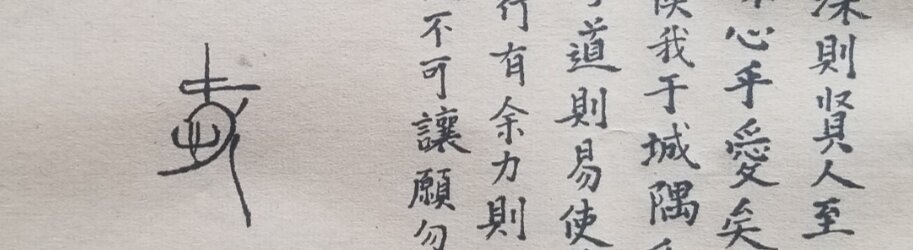 深則賢人至
心乎愛矣
俟我于城隅
道則易使
行有余力則
不可讓願勿